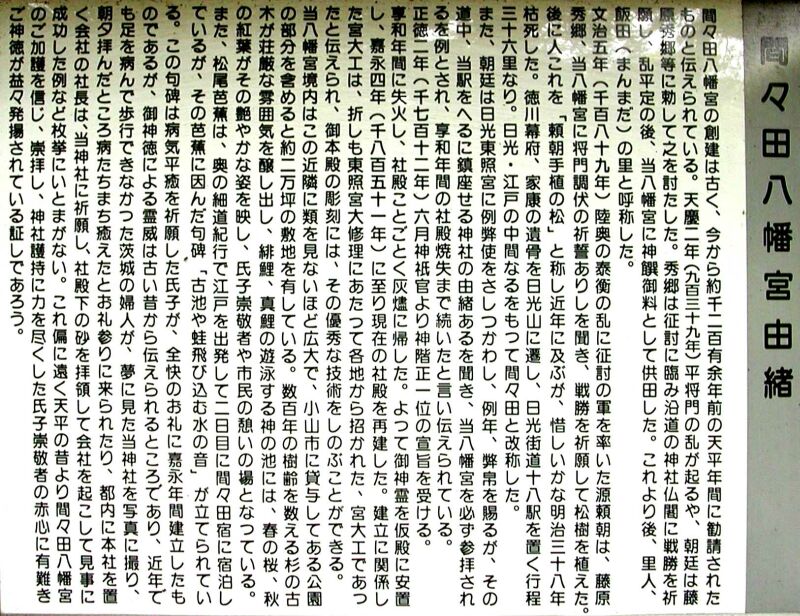 間々田八幡宮由緒
間々田八幡宮の創建は古く、今から約千二百有余年前の天平年間に勧請された
ものと伝えられている。天慶二年(九百三十九年)平将門の乱が起るや、朝廷は藤
原秀郷等に勅して之を討たした。秀郷は征討に臨み沿道の神社仏閣に戦勝を祈
願し、乱平定の後、当八幡宮に神饌御料として供田した。これより後、里人、
飯田(まんまだ)の里と呼称した。
文治五年(千百八十九年)陸奥の泰衡の乱に征討の軍を率いた源頼朝は、藤原
秀郷、当八幡宮に将門調伏の祈誓ありしを聞き、戦勝を祈願して松樹を植えた。
後に人これを「頼朝手植の松」と称し近年に及ぶが、惜しいかな明治三十八年
枯死した。徳川幕府、家康の遺骨を日光山に遷し、日光街道十八駅を置く行程
三十六里なり。日光・江戸の中間なるをもつて間々田と改称した。
また、朝廷は日光東照宮に例幣使をさしつかわし、例年、弊帛を賜るが、その
道中、当駅をへるに鎮座せる神社の由緒あるを聞き、当八幡宮を必ず参拝され
るを例とされ、享和年間の社殿焼失まで続いたと言い伝えられている。
正徳二年(千七百十二年)六月神祇官より神階正一位の宣旨を受ける。
享和年間に失火し、社殿ことごとく灰燼に帰した。よつて御神霊を仮殿に安置
し、嘉永四年(千八百五十一年)に至り現在の社殿を再建した。建立に関係し
た宮大工は、折しも東照宮大修理にあたつて各地から招かれた、宮大工であつ
たと伝えられ、御本殿の彫刻には、その優秀な技術をしのぶことができる。
当八幡宮境内はこの近隣に類を見ないほど広大で、小山市に貸与してある公園
の部分を含めると約二万坪の敷地を有している。数百年の樹齢を数える杉の古
木が荘厳な雰囲気を醸し出し、緋鯉、真鯉の遊泳する神の池には、春の桜、秋
の紅葉がその艶やかな姿を映し、氏子崇敬者や市民の憩いの場となつている。
また、松尾芭蕉は、奥の細道紀行で江戸を出発して二日目に間々田宿に宿泊し
ているが、その芭蕉に因んだ句碑「古池や蛙飛び込む水の音」が立てられてい
る。この句碑は病気平癒を祈願した氏子が、全快のお礼に嘉永年間建立したも
のであるが、御神徳による霊威は古い昔から伝えられるところであり、近年で
も足を病んで歩行できなかつた茨城の婦人が、夢に見た当神社を写真に撮り、
朝夕拝んだところ病たちまち癒えたとお礼参りに来られたり、都内に本社を置
く会社の社長は、当神社に祈願し、社殿下の砂を拝領して会社を起こして見事に
成功した例など枚挙にいとまがない。これ偏に遠く天平の昔より間々田八幡宮
のご加護を信じ、崇拝し、神社護持に力を尽くした氏子崇敬者の赤心に有難き
ご神徳が益々発揚されている証しであろう。